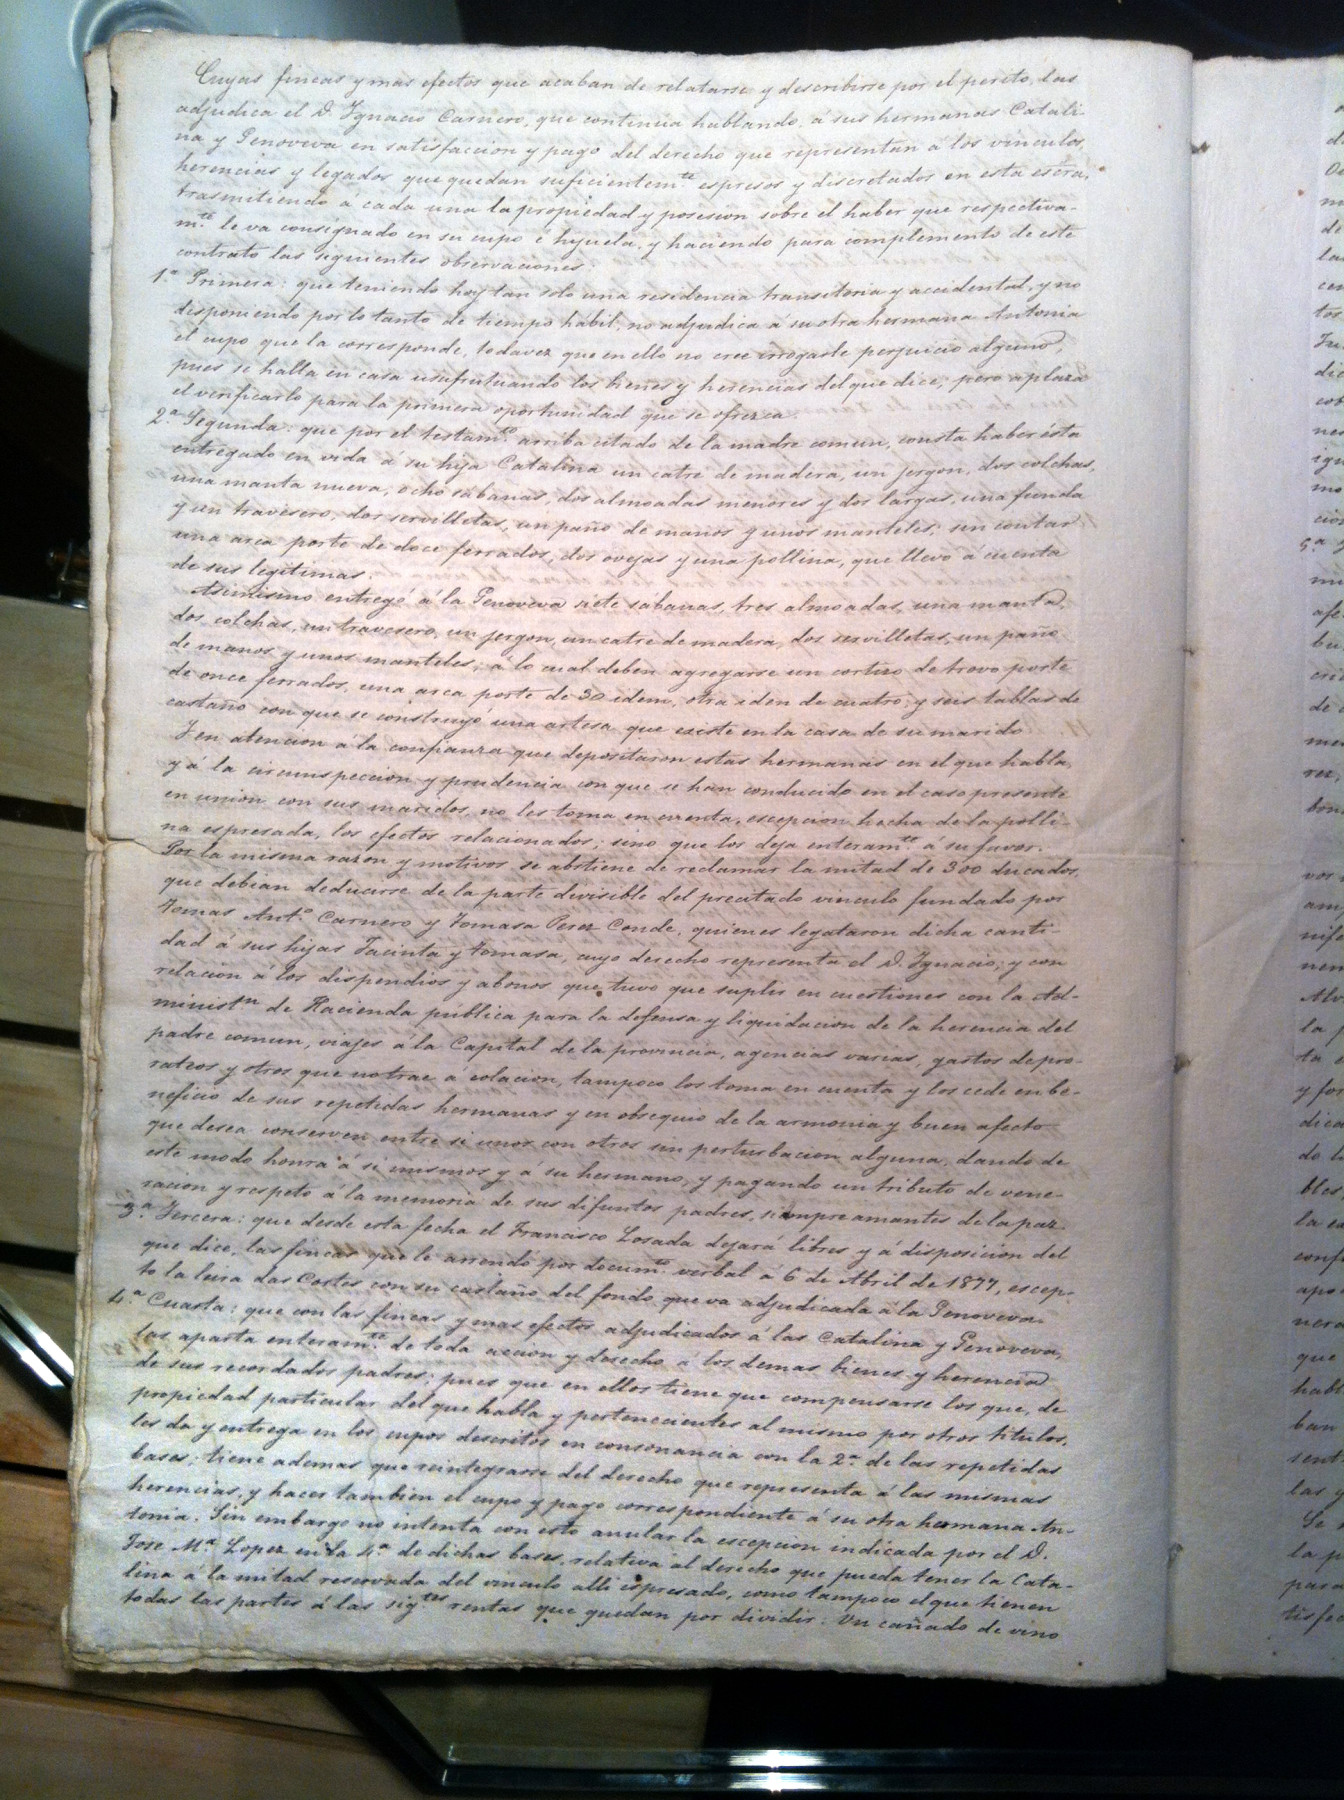 Cuyas fincas y mas efectos que acaban de relatarse y describirse por el perito, las
adjudica el D. Ygnacio Carnero, que continúa hablando, á sus hermanas Catali-
na y Genoveva en satisfaccion y pago del derecho que representan á los vinculos,
herencias y legados que quedan suficientem.te espresos y discretados en esta escra,
trasmitiendo á cada una la propiedad y posesion sobre el haber que respectiva-
m.te le va consignado en su cupo é hijuela, y haciendo para complemento de este
contrato las siguientes observaciones.
1.a Primera: que teniendo hoy tan solo una residencia transitoria y accidental, y no
disponiendo por lo tanto de tiempo hábil, no adjudica á su otra hermana Antonia
el cupo que la corresponde, toda vez que en ello no cree irrogarle perjuicio alguno,
pues se halla en casa usufrutuando los bienes y herencias del que dice, pero aplaza
el verificarlo para la primera oportunidad que se ofrezca.
2.a Segunda: que por el testam.to arriba citado de la madre comun, consta haber ésta
entregado en vida á su hija Catalina un catre de madera, un jergon, dos colchas,
una manta nueva, ocho sábanas, dos almoadas menores y dos largas, una funda
y un travesero, dos servilletas, un paño de manos y unos manteles; sin contar
una arca porte de doce ferrados, dos ovejas y una pollina, que llevó á cuenta
de sus legitimas.
Asimismo entregó á la Genoveva siete sábanas, tres almoadas, una manta,
dos colchas, un travesero, un jergon, un catre de madera, dos servilletas, un paño
de manos y unos manteles; á lo cual deben agregarse un cortizo de trovo porte
de once ferrados, una arca porte de 30 idem, otra iden de cuatro; y seis tablas de
castaño con que se construyó una artesa que existe en la casa de su marido.
Y en atencion á la confianza que depositaron estas hermanas en el que habla,
y á la circunspeccion y prudencia con que se han conducido en el caso presente
en union con sus maridos, no les toma en cuenta, escepcion hecha de la polli-
na espresada, los efectos relacionados; sino que los deja enteram.te á su favor.
Por la misma razon y motivos se abstiene de reclamar la mitad de 300 ducados,
que debian deducirse de la parte divisible del precitado vinculo fundado por
Tomas Ant.o Carnero y Tomasa Perez Conde, quienes legataron dicha canti-
dad á sus hijas Jacinta y Tomasa, cuyo derecho representa el D. Ygnacio; y con
relacion á los dispendios y abonos que tuvo que suplir en cuestiones con la Ad-
minist.on de Hacienda pública para la defensa y liquidacion de la herencia del
padre comun, viajes á la Capital de la provincia, agencias varias, gastos de pro-
rateos y otros que no trae á colacion, tampoco los toma en cuenta y los cede en be-
neficio de sus repetidas hermanas y en obsequio de la armonia y buen afecto
que desea conserven entre si unos con otros sin perturbacion alguna, dando de
este modo honra á si mismos y á su hermano, y pagando un tributo de vene-
racion y respeto á la memoria de sus difuntos padres, siempre amantes de la paz.
3.a Tercera: que desde esta fecha el Francisco Losada dejará libres y á disposicion del
que dice, las fincas que le arrendó por docum.to verbal á 6 de Abril de 1877, escep-
to la leira das Cortes con su castaño del fondo que va adjudicada á la Genoveva.
4.a Cuarta: que con las fincas y mas efectos adjudicados á las Catalina y Genoveva,
las aparta enteram.te de toda accion y derecho á los demas bienes y herencia
de sus recordados padres; pues que en ellos tiene que compensarse los que, de
propiedad particular del que habla y pertenecientes al mismo por otros titulos,
les da y entrega en los cupos descritos en consonancia con la 2.a de las repetidas
bases; tiene ademas que reintegrarse del derecho que representa á las mismas
herencias, y hacer tambien el cupo y pago correspondiente á su otra hermana An-
tonia. Sin embargo no intenta con esto anular la escepcion indicada por el D.
Jose M.a Lopez en la 4.a de dichas bases, relativa al derecho que pueda tener la Cata-
lina á la mitad reservada del vinculo alli espresado, como tampoco el que tienen
todas las partes á las sig.tes rentas que quedan por dividir: Un cañado de vino